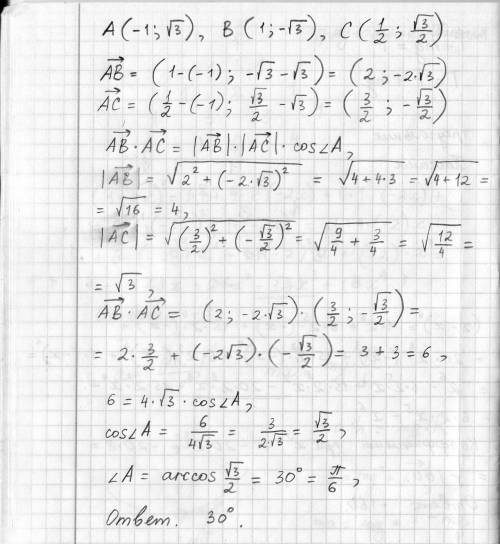 A(-1; √3), B(1; -√3), C(1/2; √3/2)
AB→ = (1-(-1); -√3-√3) = (2; -2·√3)
AC→ = (1/2-(-1); √3/2 - √3) = (3/2; -√3/2)
AB→ · AC→ = |AB→|·|AC→|· cos∠A,
|AB→| = √(2² + (-2·√3)²) = √(4+4·3) = √(4+12) =
= √16 = 4,
|AC→| = √((3/2)² + (-√3/2)²) = √(9/4 + 3/4) = √(12/4) =
= √3,
AB→ · AC→ = (2; -2·√3)·(3/2; -√3/2) =
= 2·3/2 + (-2√3)·(-√3/2) = 3+3 = 6,
6 = 4·√3 · cos∠A,
cos∠A = 6/4√3 = 3/2·√3 = √3/2,
∠A = arccos √3/2 = 30° = π/6,
Ответ. 30°.